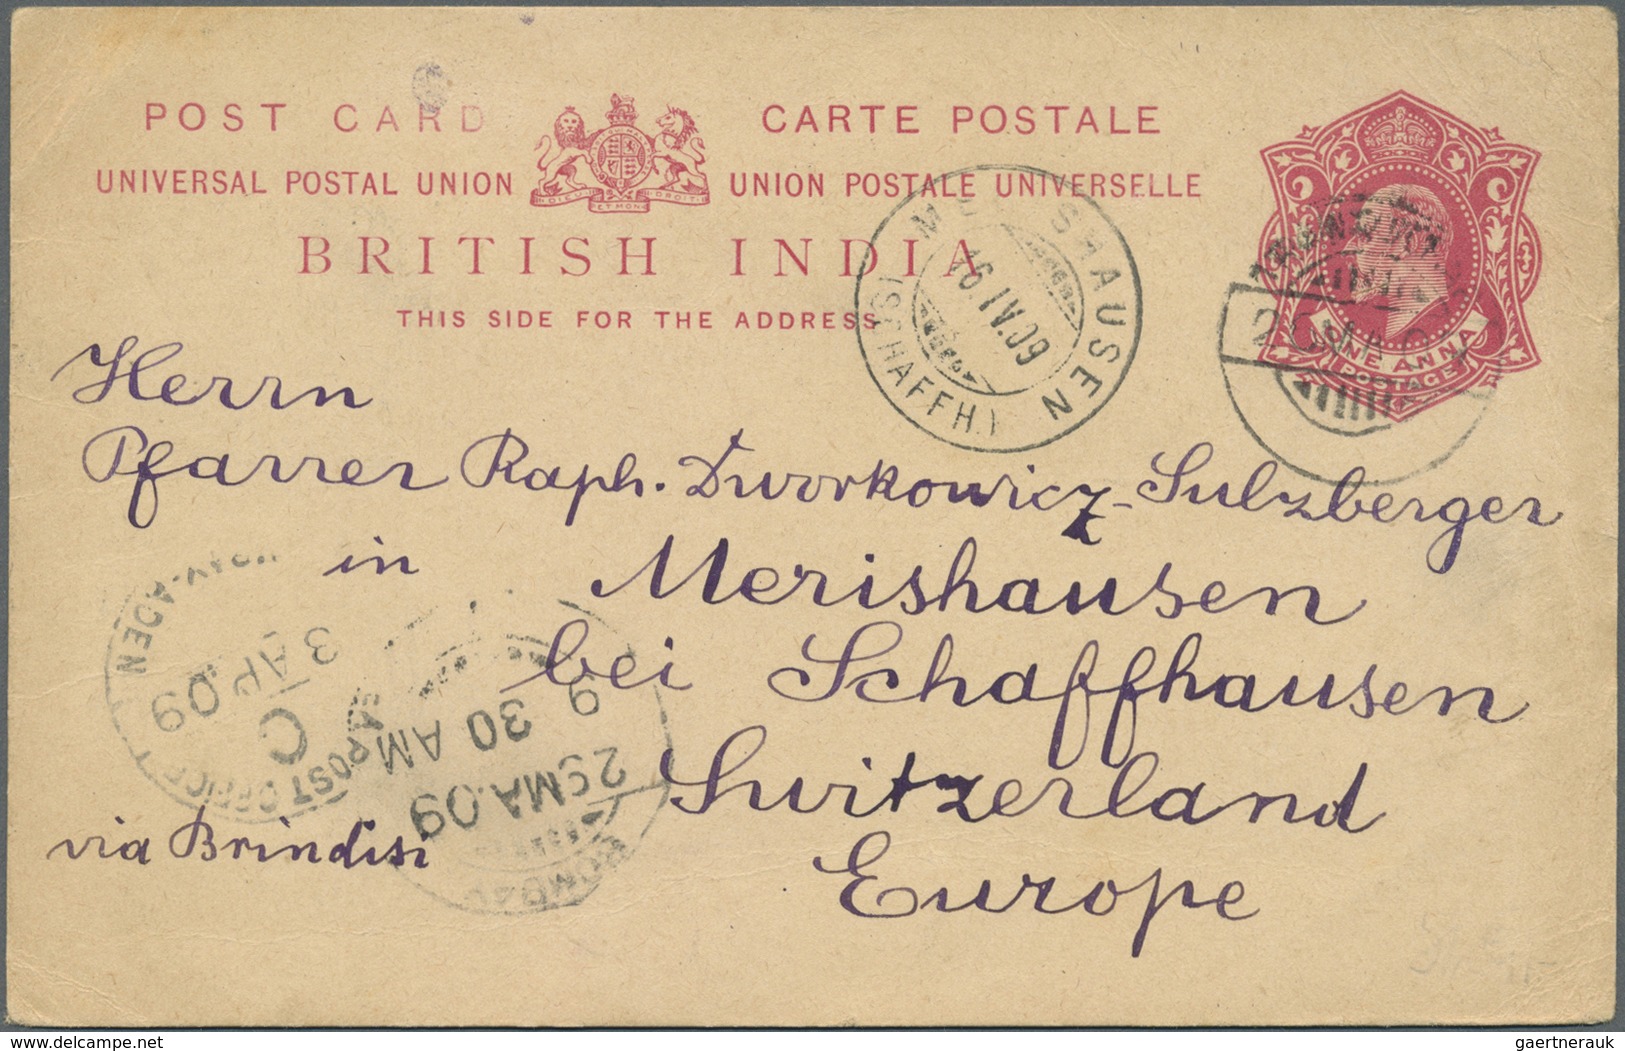 POST CARD
CARTE POSTALE
UNIVERSAL POSTAL UNION
UNION POSTALE UNIVERSELLE
BRITISH INDIA
THIS SIDE FOR THE ADDRESS
ONE ANNA
POSTAGE
SHAUSEN
16.IV.09
(SCHAFFH.)
Herrn
Pfarrer Raph. Dworkowicz-Sulzberger
in Merishausen
bei Schaffhausen
Switzerland
Europe
via Brindisi
POST OFFICE
ADEN
3 AP.09
C
9 30 AM
29MA.09
delcampe.net
gaertnerauk